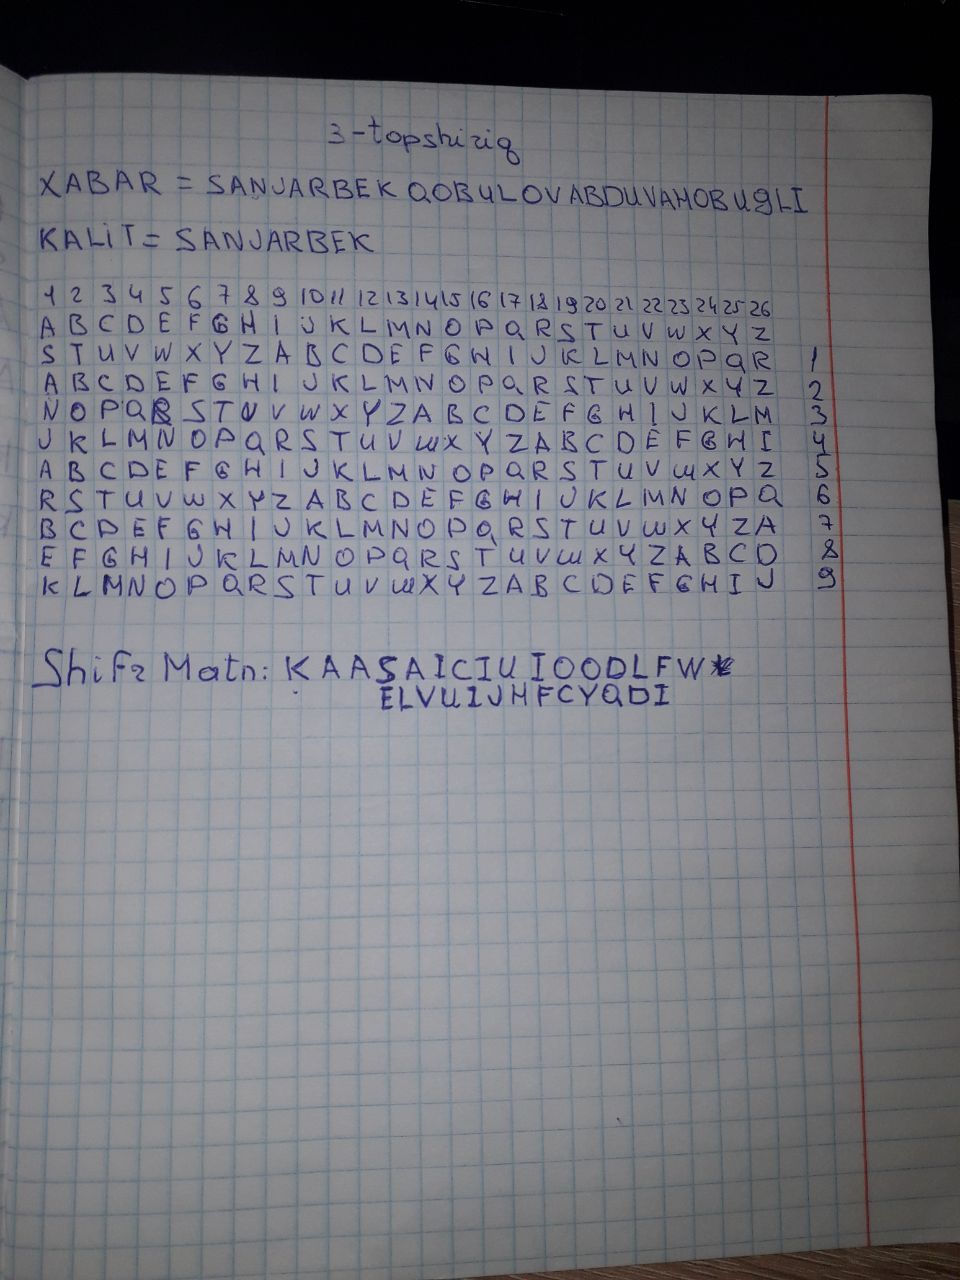 3-topshiriq
XABAR = SANJARBEK QOBULOVABDUVAHOBUGLI
KALIT = SANJARBEK
1 2 3 4 5 6 7 8 9 10 11 12 13 14 15 16 17 18 19 20 21 22 23 24 25 26
A B C D E F G H I J K L M N O P Q R S T U V W X Y Z
S T U V W X Y Z A B C D E F G H I J K L M N O P Q R 1
A B C D E F G H I J K L M N O P Q R S T U V W X Y Z 2
N O P Q R S T U V W X Y Z A B C D E F G H I J K L M 3
J K L M N O P Q R S T U V W X Y Z A B C D E F G H I 4
A B C D E F G H I J K L M N O P Q R S T U V W X Y Z 5
R S T U V W X Y Z A B C D E F G H I J K L M N O P Q 6
B C D E F G H I J K L M N O P Q R S T U V W X Y Z A 7
E F G H I J K L M N O P Q R S T U V W X Y Z A B C D 8
K L M N O P Q R S T U V W X Y Z A B C D E F G H I J 9
Shifr Matn: KAASAICIU IOODLFW
ELVUIJHFCYQDI